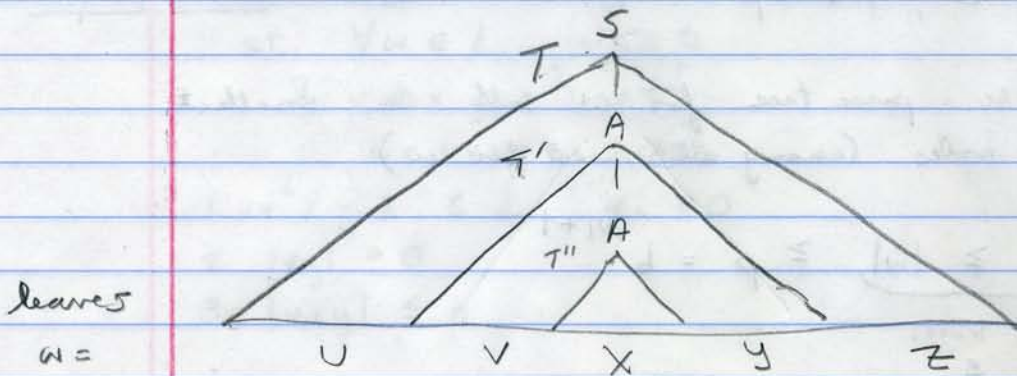 S
T
A
T'
A
T"
leaves
w =
U V X Y Z